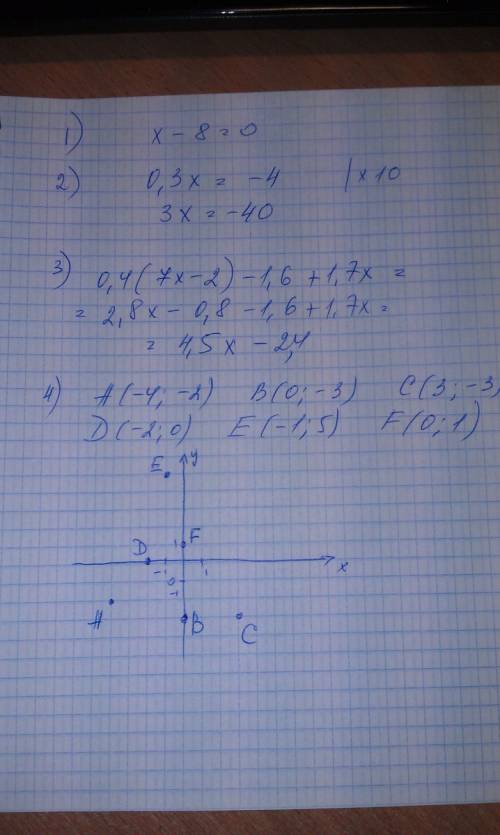 1) x - 8 = 0
2) 0,3x = -4 | x10
3x = -40
3) 0,4(7x-2) -1,6 +1,7x =
= 2,8x - 0,8 -1,6 +1,7x =
= 4,5x - 2,4
4) A(-4; -2) B(0; -3) C(3; -3)
D(-2; 0) E(-1; 5) F(0; 1)
E y
1 F
D -1 0 1 x
-1
A B C